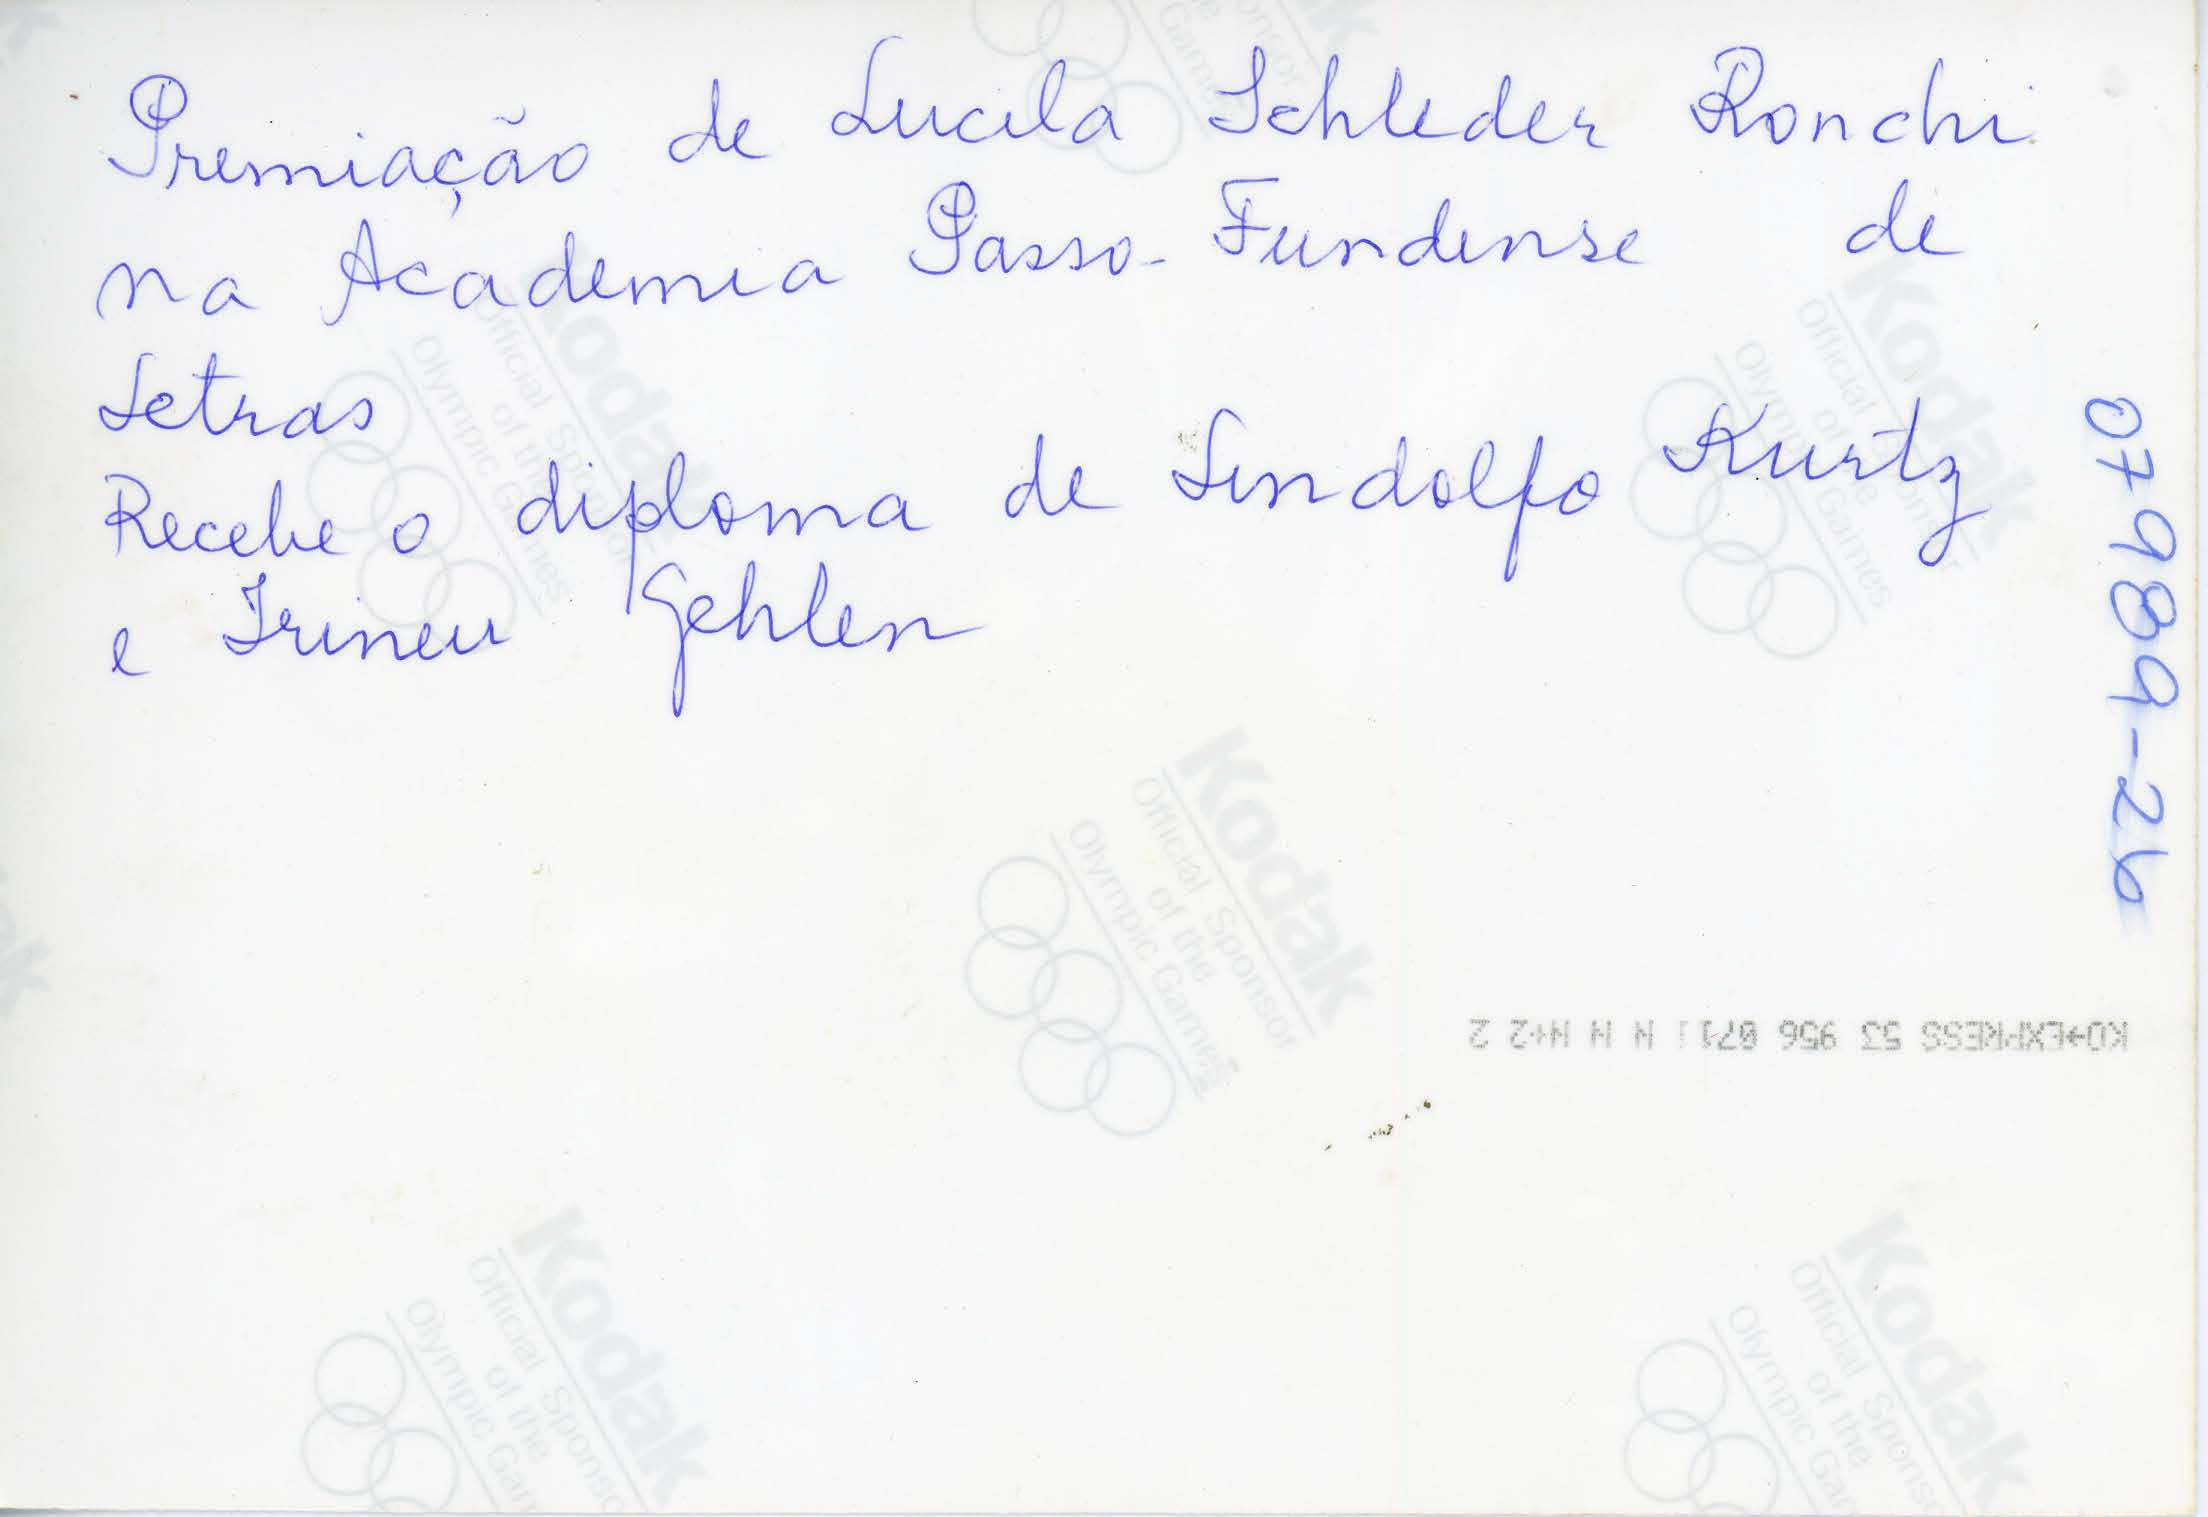 Premiação de Lucila Schleder Ronchi
na Academia Passo-Fundense de
Letras
Recebe o diploma de Lindolfo Kurtz
e Irineu Gehlen
07989-26
KO+EXPRESS 53 956 071 N N N+2 2
Kodak
Official Sponsor
of the
Olympic Games